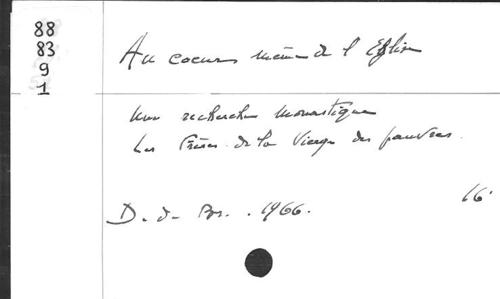 88
83
9
1
Au coeur même de l'Eglise
Une recherche monastique
Les Frères de la Vierge des pauvres.
D. d. Br. . 1966.
16°